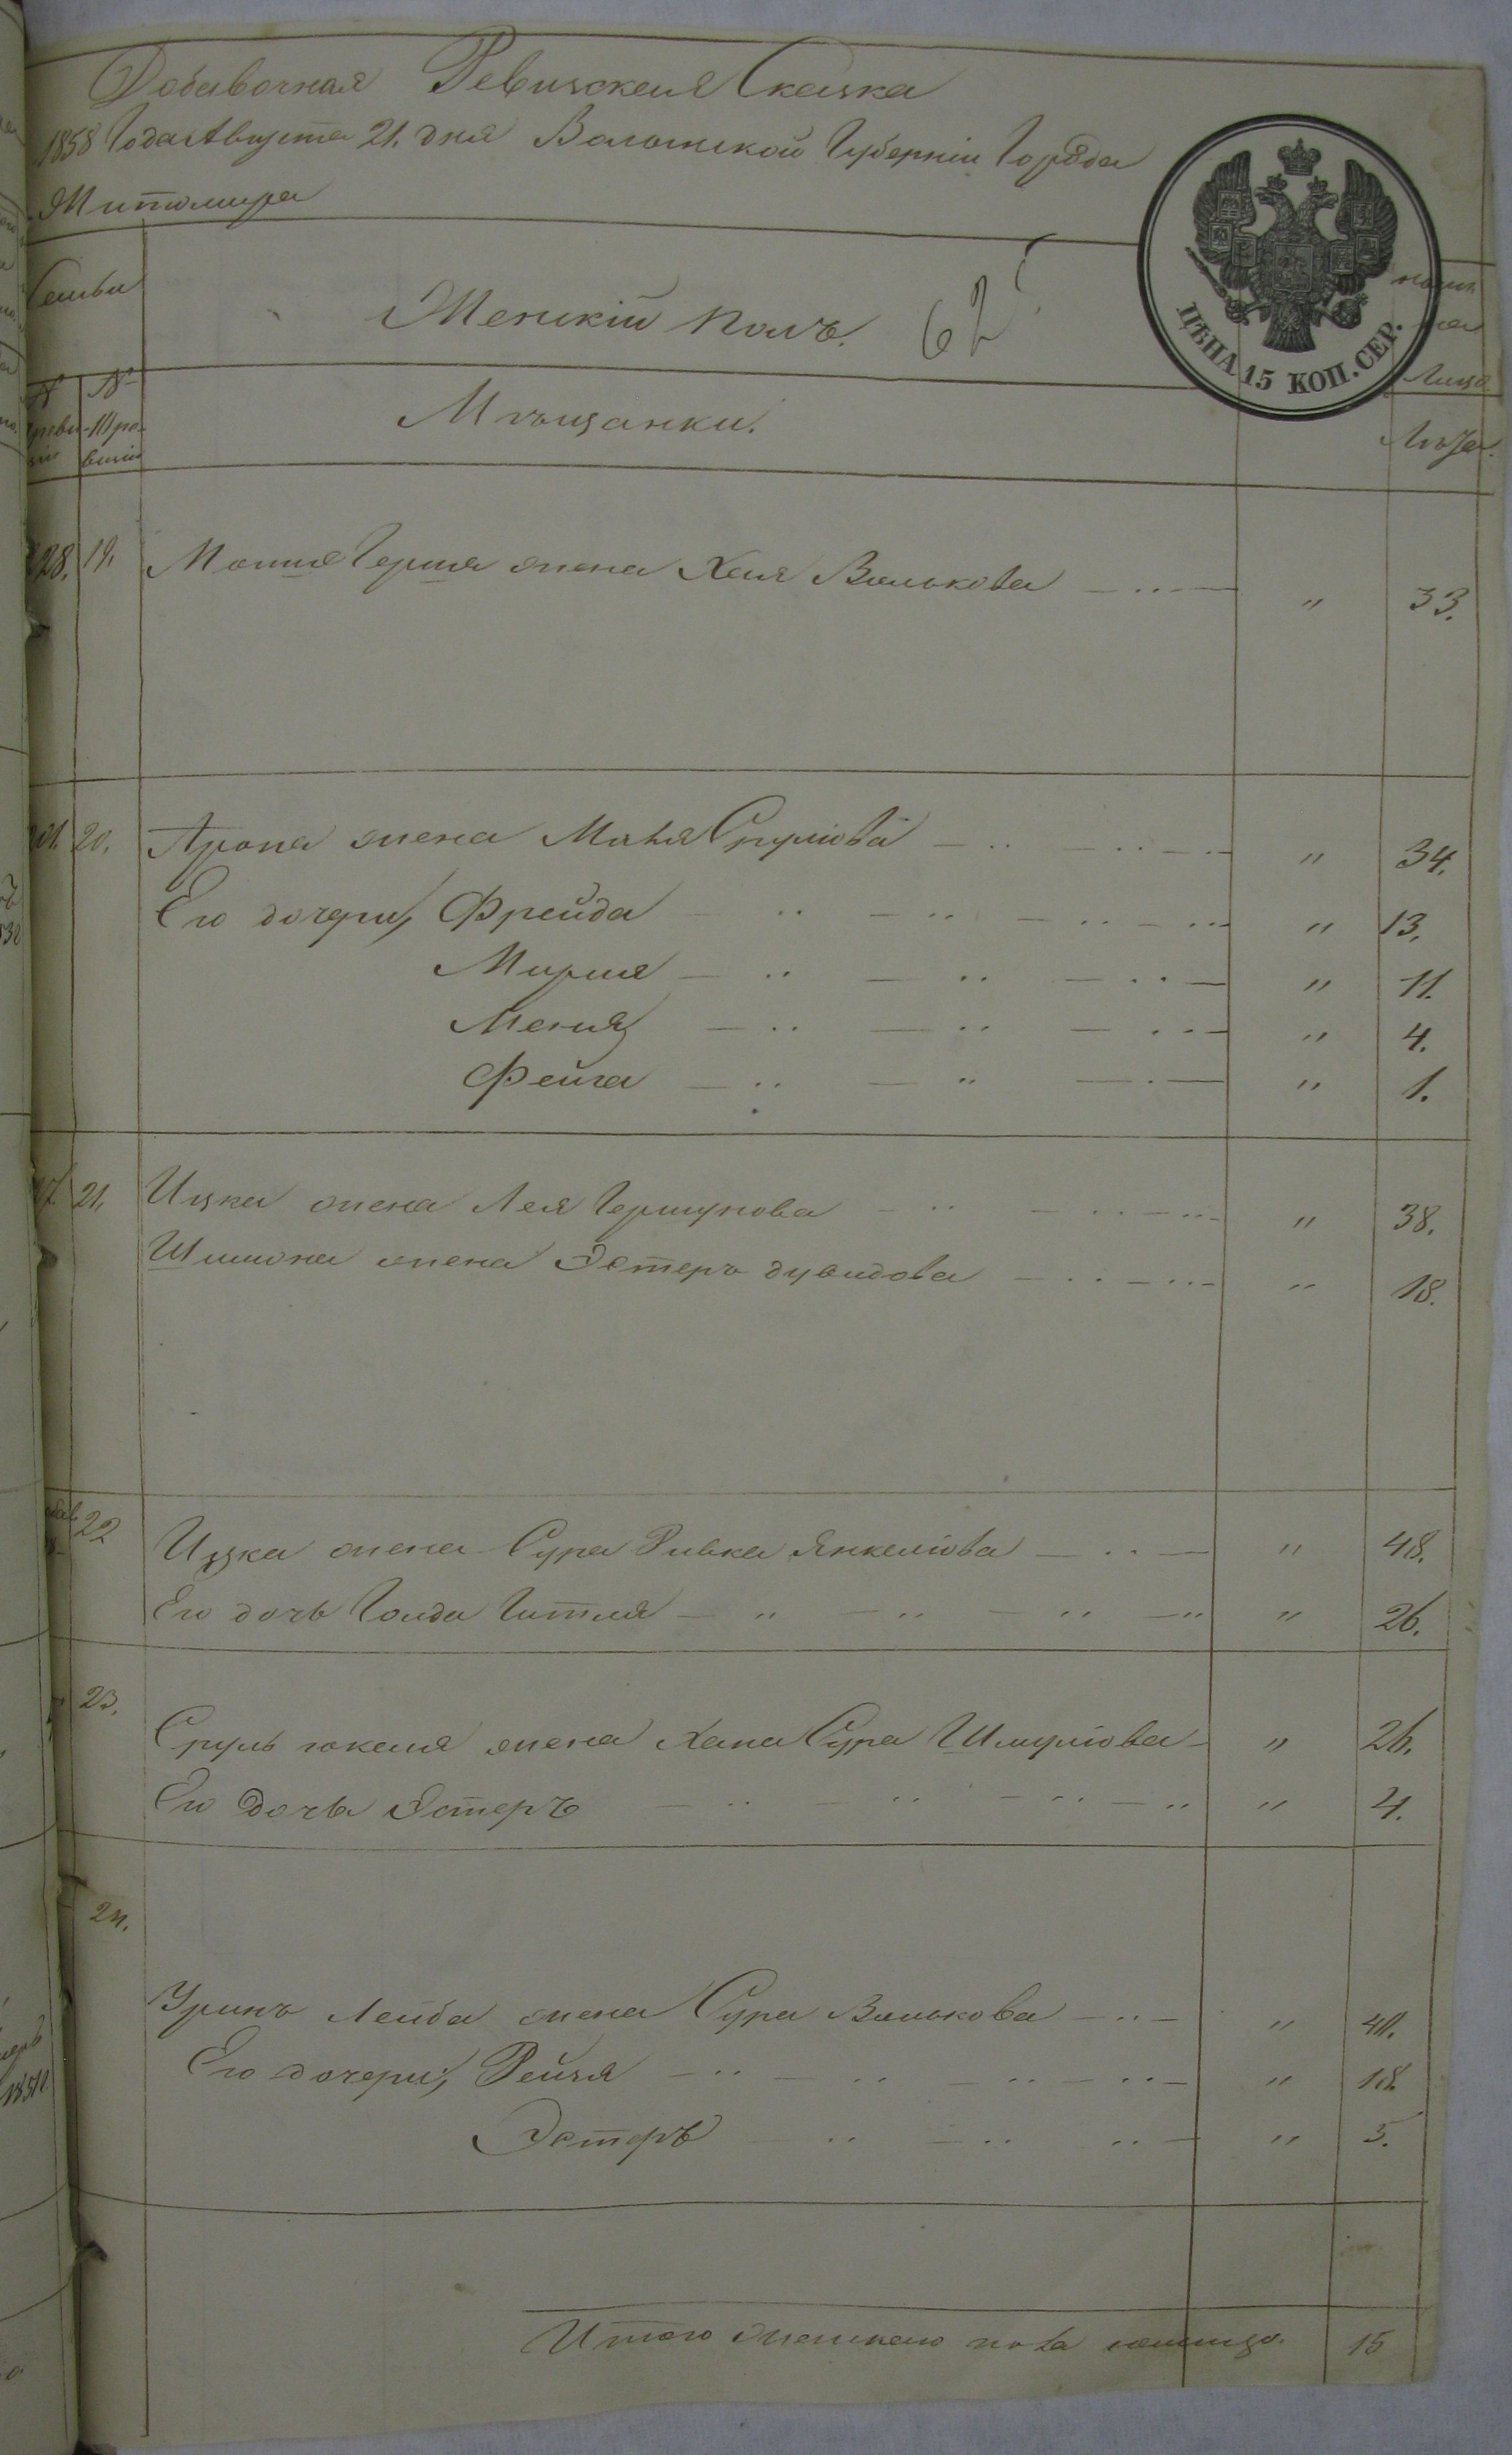 Добавочная Ревизская Сказка
1858 Года Августа 21. дня Волынской Губерніи Города
Житомира
Семьи
Женскій полъ. 62
ЦѢНА 15 КОП. СЕР.
Лица
№ №
Мѣщанки.
Лѣта.
28. 19. Мошка Герша жена Хая Волькова " 33.
20. Арона жена Маня Срулiова " 34.
Его дочери, Фрейда " 13.
Мирля " 11.
Меня " 4.
Фейга " 1.
21. Ицка жена Лея Гершунова " 38.
Шимона жена Эстеръ Дувидова " 18.
22 Ицка жена Сура Ривка Янкелiова " 48.
Его дочь Голда Гитля " 26.
23.
Сруль Іокеля жена Хана Сура Шмулiова " 26.
Его Дочь Эстеръ " 4.
24.
Уринъ Лейба жена Сура Волькова " 40.
Его дочери, Рейзя " 18.
Эстеръ " 5.
Итого женскаго пола налицо. 15